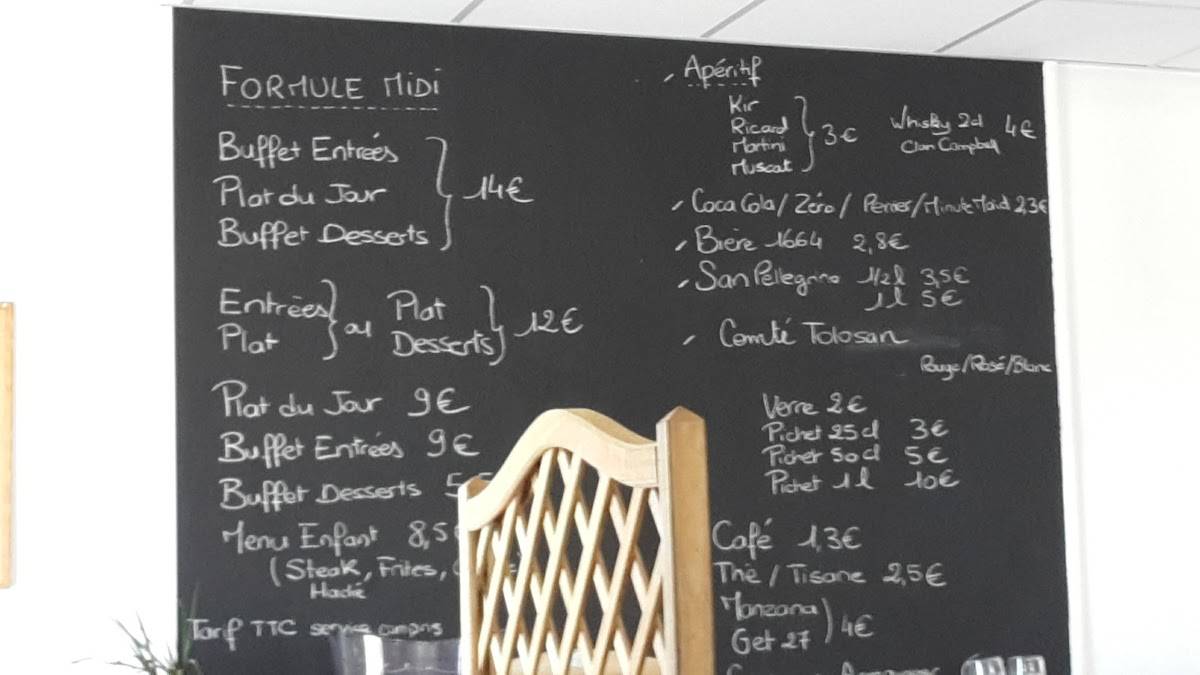 FORMULE MIDI
Buffet Entrées
Plat du Jour
Buffet Desserts
14€
Entrées
Plat
ou
Plat
Desserts
12€
Plat du Jour 9€
Buffet Entrées 9€
Buffet Desserts
Menu Enfant 8,5
(Steak, Frites,
Haché
Tarif TTC service compris
Apéritif
Kir
Ricard
Martini
Muscat
3€
Whisky 2cl 4€
Clan Campbell
Coca Cola / Zéro / Perrier / Minute Maid 2,3€
Bière 1664 2,8€
San Pellegrino 1/2 l 3,5€
1 l 5€
Comté Tolosan
Rouge/Rosé/Blanc
Verre 2€
Pichet 25cl 3€
Pichet 50cl 5€
Pichet 1 l 10€
Café 1,3€
Thé / Tisane 2,5€
Manzana
Get 27
4€